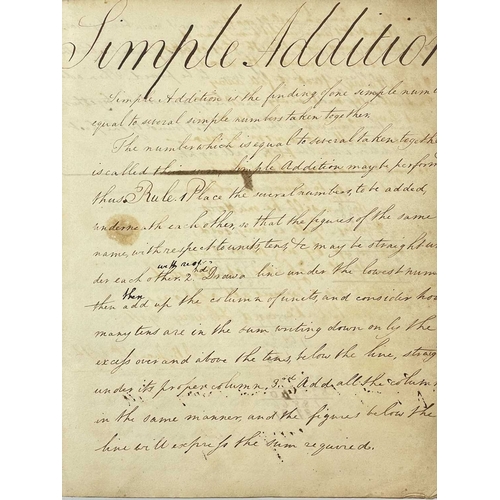 Simple Addition
Simple Addition is the finding of one simple num
equal to several simple numbers taken together.
The number which is equal to several taken togethe
is called the sum. Simple Addition may be perform
thus. Rule. 1 Place the several numbers, to be added,
underneath each other, so that the figures of the same
name, with respect to units, tens, &c may be straght u
der each other. 2nd Draw a line under the lowest num
then add up the column of units, and consider how
many tens are in the sum writing down on the
excess over and above the tens, below the line, straig
under its proper column, 3rd Add all the column
in the same manner, and the figures below the
line will express the sum required.